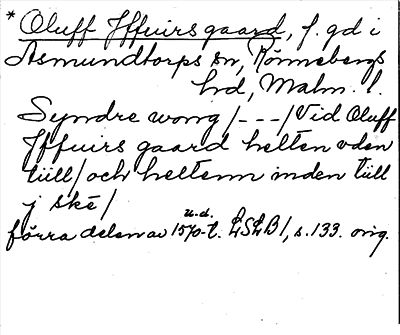 * Oluff Jffuirs gaard, f. gd i
Asmundtorps sn, Rönnebergs
hd, Malm. l.
Syndre wong /---/ Vid Oluff
Jffuirs gaard helten vden
tüll/ och heltenn inden tüll
j ske/
förra delen av 1570-t. LSLB1, s. 133. orig.
u.d.